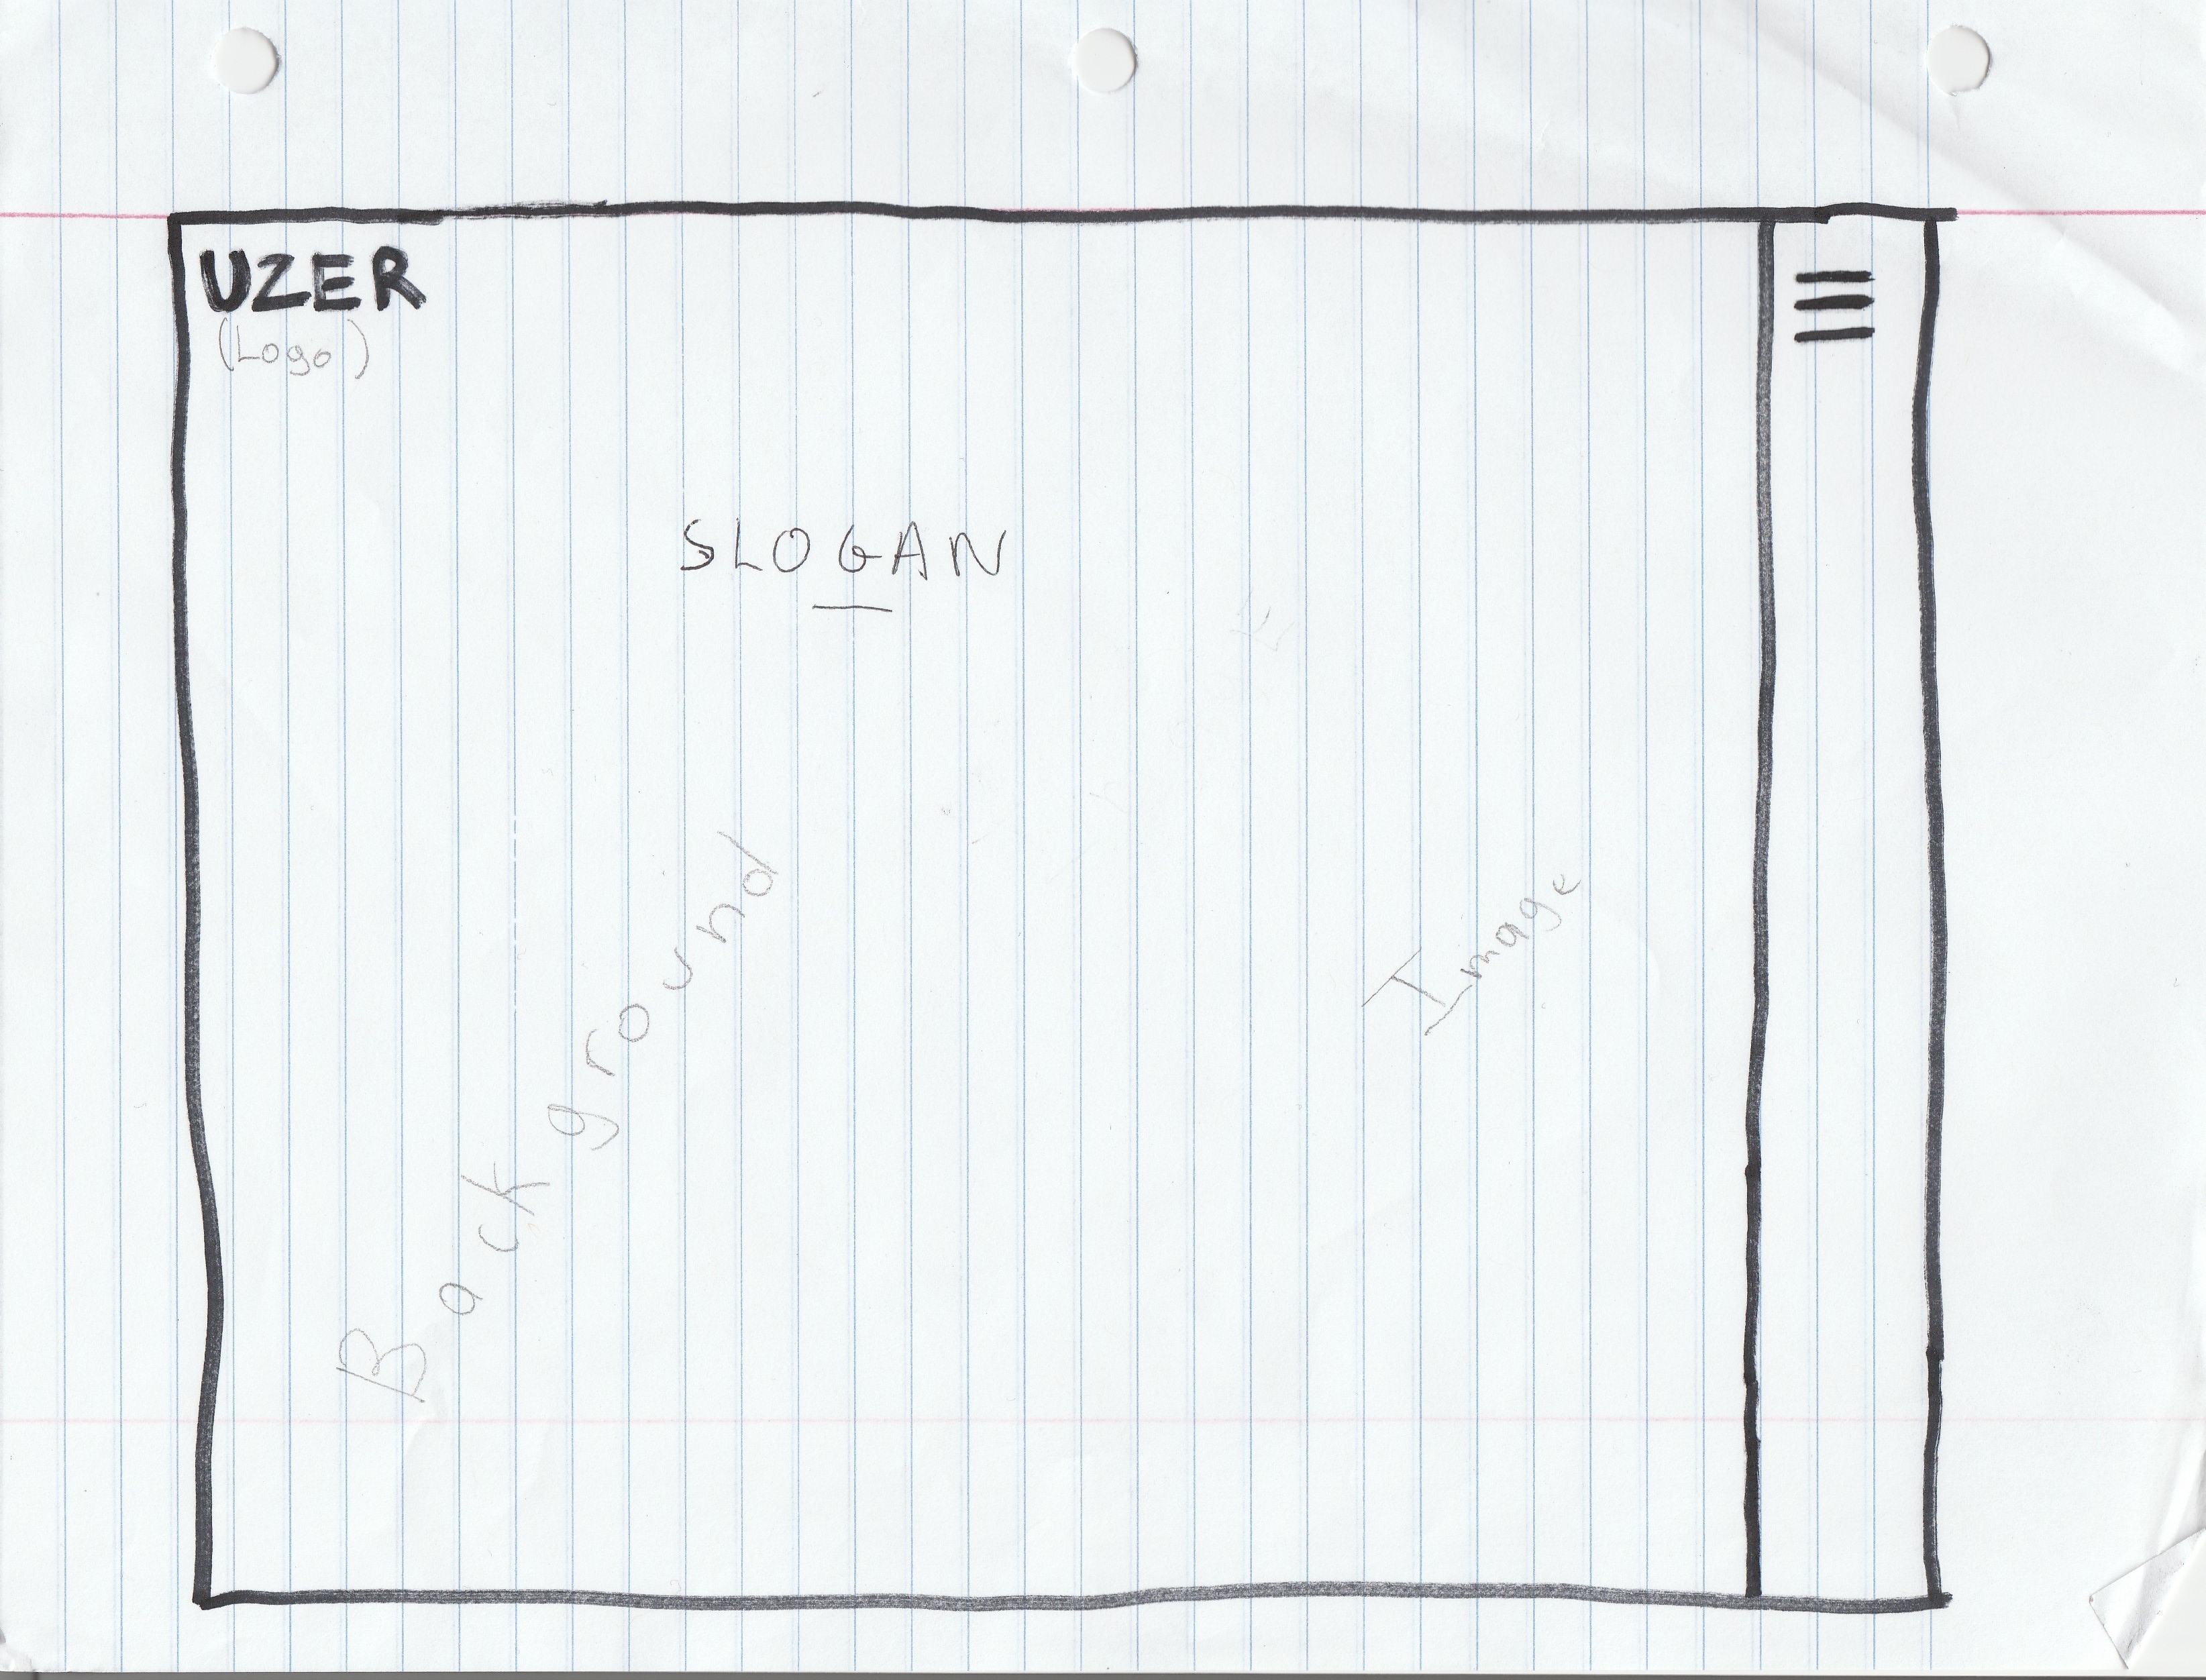 UZER
(Logo)
SLOGAN
Background
Image